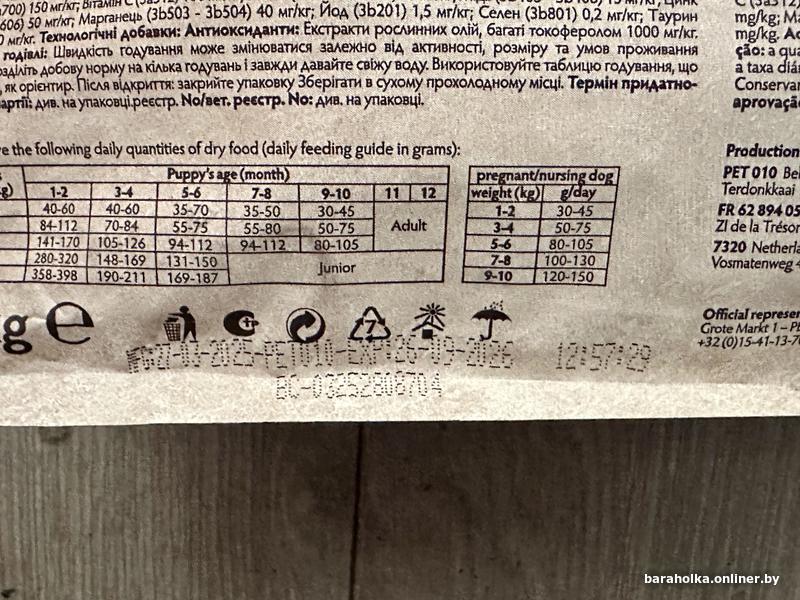 700) 150 мг/кг; Вітамін С
606) 50 мг/кг; Марганець (3b503 - 3b504) 40 мг/кг; Йод (3b201) 1,5 мг/кг; Селен (3b801) 0,2 мг/кг; Таурин
мг/кг. Технологічні добавки: Антиоксиданти: Екстракти рослинних олій, багаті токоферолом 1000 мг/кг.
годівлі: Швидкість годування може змінюватися залежно від активності, розміру та умов проживання
розділіть добову норму на кілька годувань і завжди давайте свіжу воду. Використовуйте таблицю годування, що
, як орієнтир. Після відкриття: закрийте упаковку Зберігати в сухому прохолодному місці. Термін придатно-
партії: див. на упаковці.реєстр. No/вет. реєстр. No: див. на упаковці.
mg/kg; Ma
mg/kg. Ad
ção: a qua
a taxa diá
Conservar
aprovação
e the following daily quantities of dry food (daily feeding guide in grams):
Puppy's age (month)
g) 1-2 3-4 5-6 7-8 9-10 11 12
40-60 40-60 35-70 35-50 30-45 Adult
84-112 70-84 55-75 55-80 50-75
141-170 105-126 94-112 94-112 80-105
280-320 148-169 131-150 Junior
358-398 190-211 169-187
pregnant/nursing dog
weight (kg) g/day
1-2 30-45
3-4 50-75
5-6 80-105
7-8 100-130
9-10 120-150
Production
PET 010 Bel
Terdonkkaai
FR 62 894 05
ZI de la Trésor
7320 Netherla
Vosmatenweg 4
Official represen
Grote Markt 1 – Pl
+32 (0)15-41-13-70
g e
7
MFG:27-03-2025-PET010-EXP:26-09-2026 12:57:29
BC-03252808704
baraholka.onliner.by